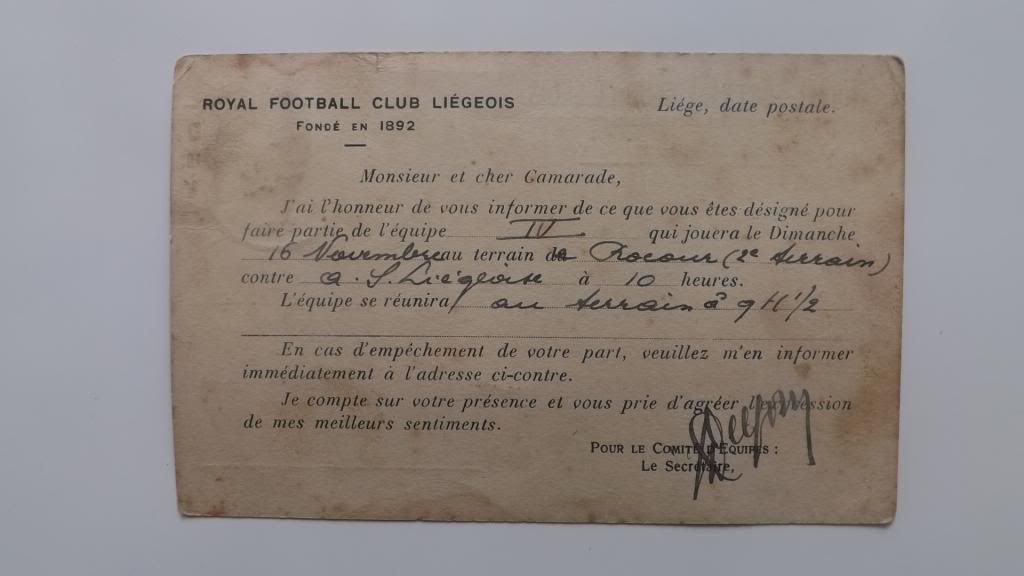 ROYAL FOOTBALL CLUB LIÉGEOIS
FONDÉ EN 1892
Liége, date postale.
Monsieur et cher Camarade,
J'ai l'honneur de vous informer de ce que vous êtes désigné pour
faire partie de l'équipe IV qui jouera le Dimanche
16 Novembre au terrain de Rocour (2e terrain)
contre A. S. Liégeoise à 10 heures.
L'équipe se réunira au terrain à 9 H 1/2
En cas d'empêchement de votre part, veuillez m'en informer
immédiatement à l'adresse ci-contre.
Je compte sur votre présence et vous prie d'agréer l'expression
de mes meilleurs sentiments.
POUR LE COMITÉ D'EQUIPES :
Le Secrétaire,